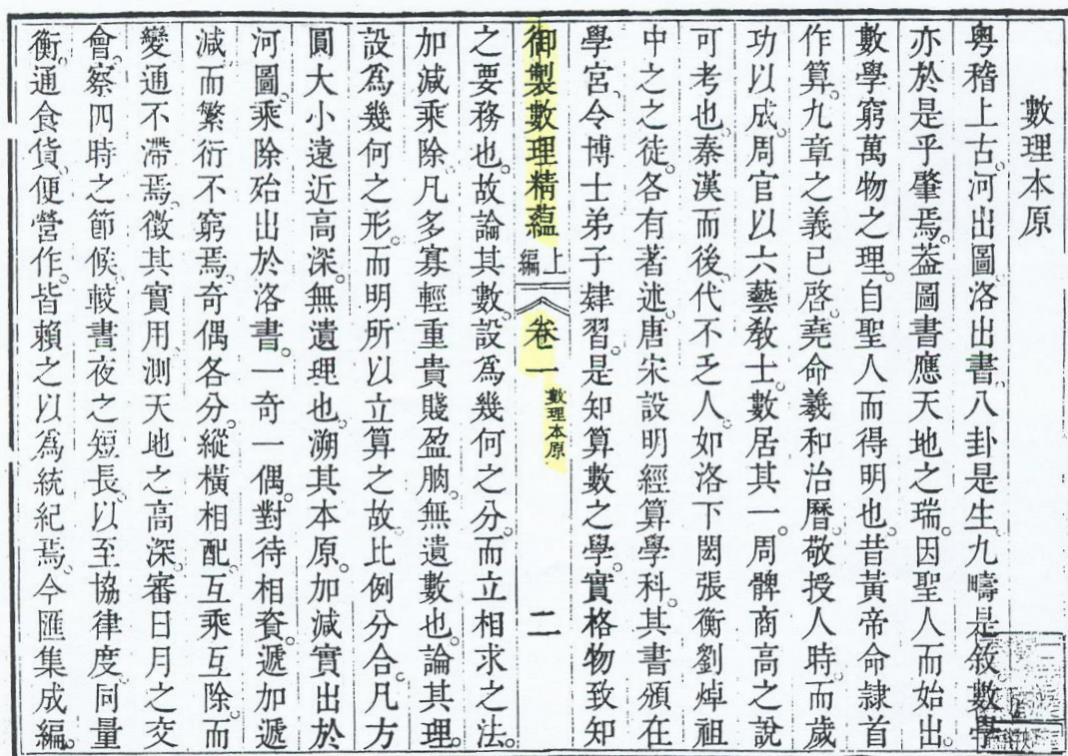 數理本原
粵稽上古。河出圖。洛出書。八卦是生。九疇是敘。數學
亦於是乎肇焉。蓋圖書應天地之瑞。因聖人而始出。
數學窮萬物之理。自聖人而得明也。昔黃帝命隸首
作算。九章之義已啓。堯命羲和治曆。敬授人時。而歲
功以成。周官以六藝教士。數居其一。周髀商高之說
可考也。秦漢而後。代不乏人。如洛下閎張衡劉焯祖
中之之徒。各有著述。唐宋設明經算學科。其書頒在
學宮。令博士弟子肄習。是知算數之學。實格物致知
御製數理精蘊 上編 卷一 數理本原 二
之要務也。故論其數。設爲幾何之分。而立相求之法。
加減乘除。凡多寡輕重貴賤盈朒。無遺數也。論其理。
設爲幾何之形。而明所以立算之故。比例分合。凡方
圓大小遠近高深。無遺理也。溯其本原。加減實出於
河圖。乘除殆出於洛書。一奇一偶。對待相資。遞加遞
減。而繁衍不窮焉。奇偶各分。縱橫相配。互乘互除。而
變通不滯焉。徵其實用。測天地之高深。審日月之交
會。察四時之節候。較晝夜之短長。以至協律度。同量
衡。通食貨。便營作。皆賴之以爲統紀焉。今匯集成編。